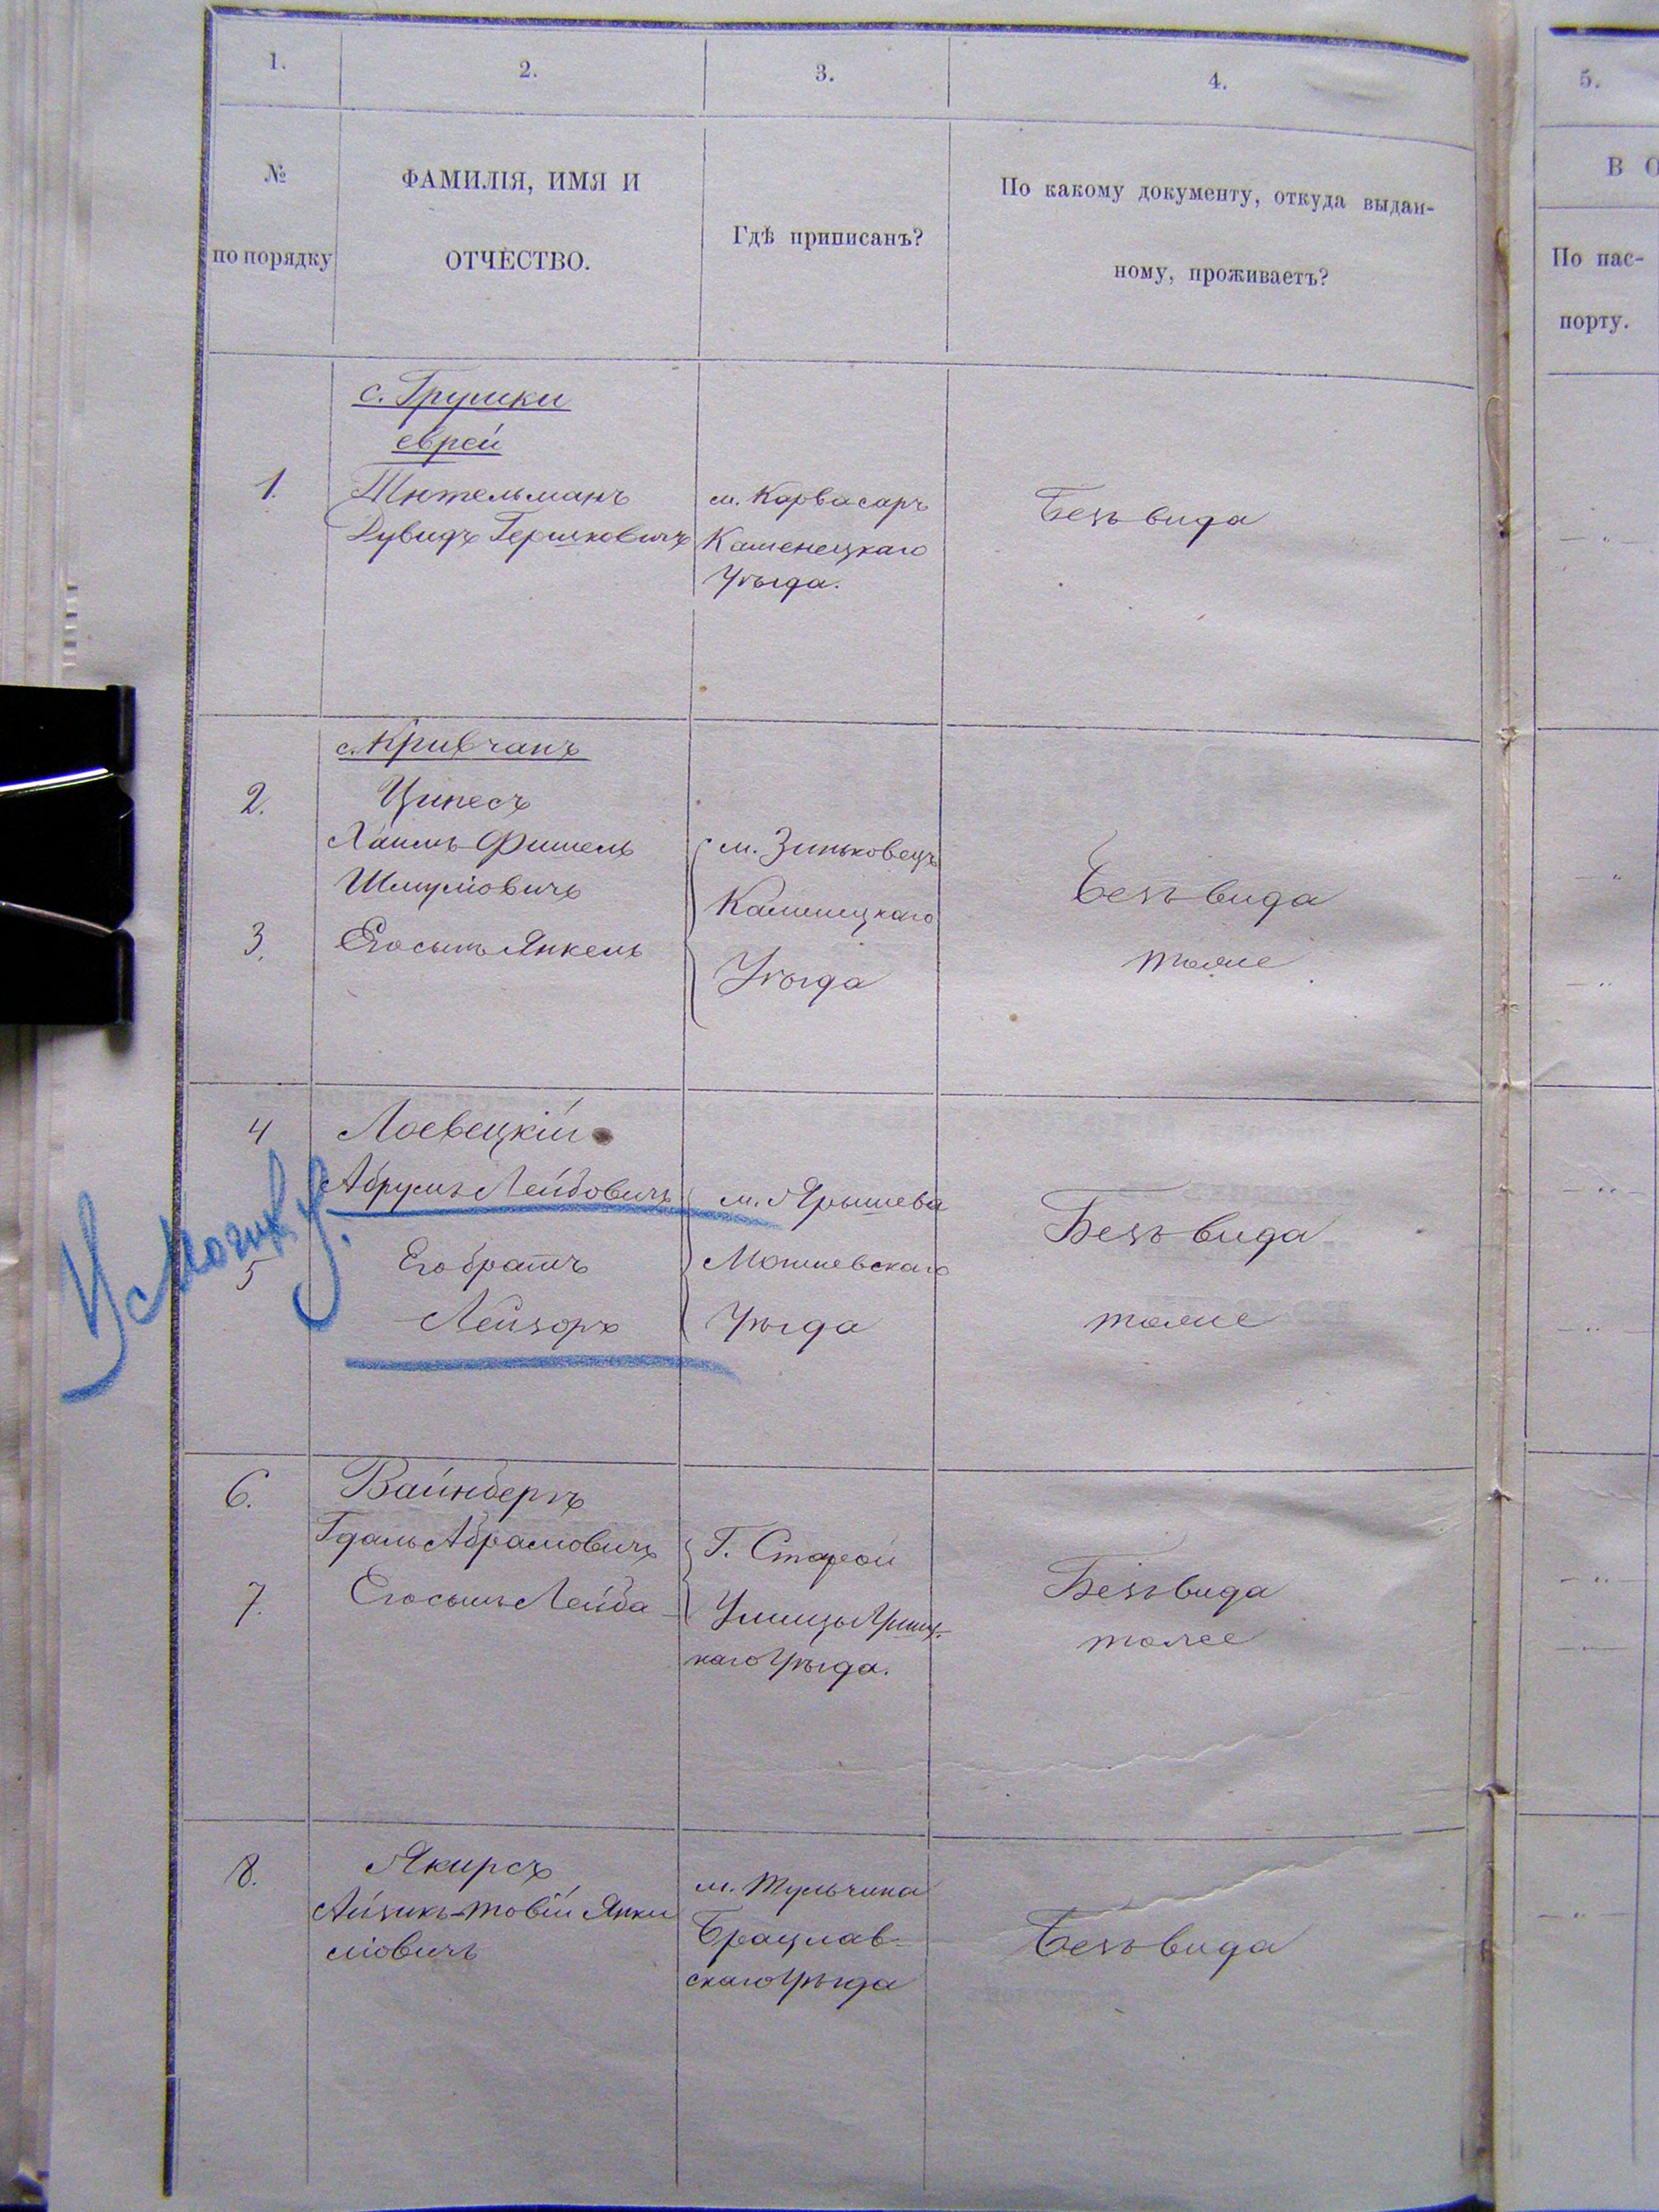 1.
2.
3.
4.
5.
№
по порядку
ФАМИЛІЯ, ИМЯ И
ОТЧЕСТВО.
Гдѣ приписанъ?
По какому документу, откуда выдан-
ному, проживаетъ?
В О
По пас-
порту.
с. Грушки
еврей
1.
Тютельманъ
Дувидъ Гершковичъ
м. Карвасаръ
Каменецкаго
Уѣзда.
Безъ вида
с. Кривчанъ
2.
Ципесъ
Хаимъ-Фишель
Шмулiовичъ
3.
Его сынъ Янкель
м. Зиньковецъ
Каменецкаго
Уѣзда
Безъ вида
тоже
4
Лоевецкій
Абрумъ Лейбовичъ
5
Его братъ
Лейзоръ
м. Ярышева
Могилевскаго
Уѣзда
Безъ вида
тоже
6.
Вайнбергъ
Гдаль Абрамовичъ
7.
Его сынъ Лейба
Г. Старой
Ушицы Ушиц-
каго Уѣзда.
Безъ вида
тоже
8.
Якирсъ
Айзикъ-Товій Янке
лiовичъ
м. Тульчина
Брацлав-
скаго Уѣзда
Безъ вида